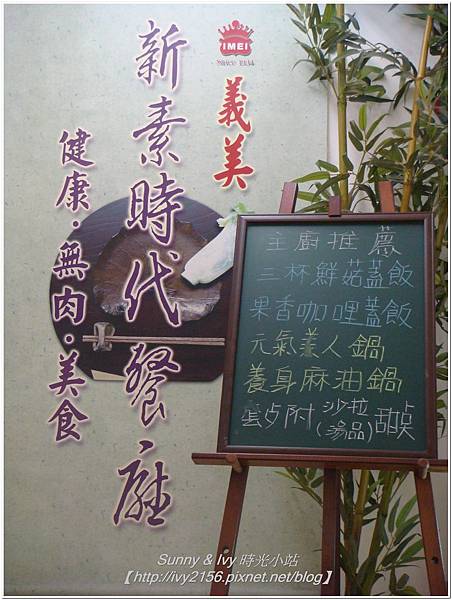 IMEI
SINCE 1934
義美
新素時代餐廳
健康·無肉·美食
主廚推薦
三杯鮮菇蓋飯
果香咖哩蓋飯
元氣美人鍋
養身麻油鍋
附 沙拉(湯品) 甜點
Sunny & Ivy 時光小站
【http://ivy2156.pixnet.net/blog】